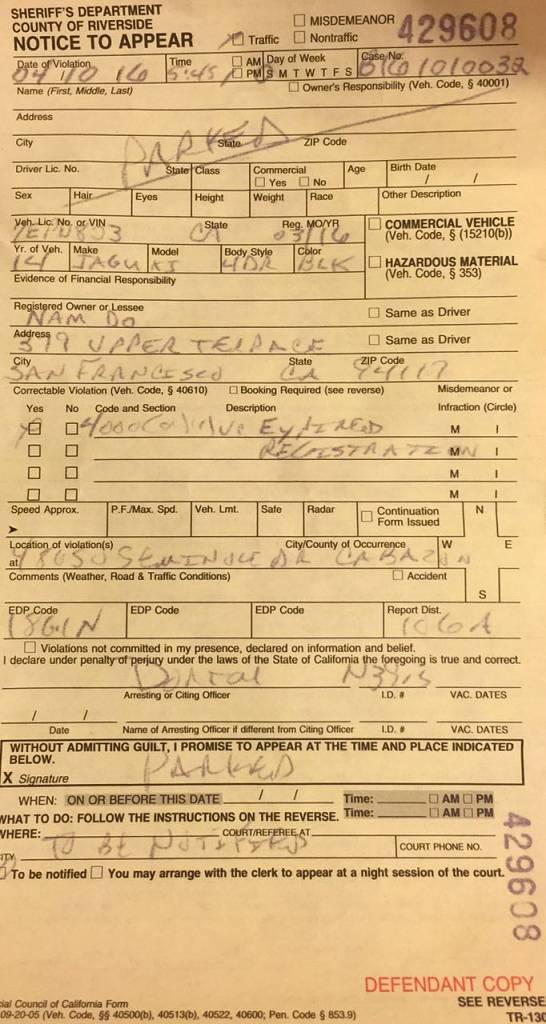 SHERIFF'S DEPARTMENT
COUNTY OF RIVERSIDE
NOTICE TO APPEAR
Traffic MISDEMEANOR
Nontraffic
429608
Date of Violation Time AM PM Day of Week S M T W T F S Case No.
04 10 16 5:45
Name (First, Middle, Last) Owner's Responsibility (Veh. Code, § 40001)
Address
City State ZIP Code
PARKED
Driver Lic. No. State Class Commercial Yes No Age Birth Date / /
Sex Hair Eyes Height Weight Race Other Description
Veh. Lic. No. or VIN State Reg. MO/YR COMMERCIAL VEHICLE
CA 03/16 (Veh. Code, § (15210(b))
Yr. of Veh. Make Model Body Style Color HAZARDOUS MATERIAL
14 JAGU XJ 4DR BLK (Veh. Code, § 353)
Evidence of Financial Responsibility
Registered Owner or Lessee Same as Driver
NAM DO
Address Same as Driver
UPPER TERRACE
City State ZIP Code
SAN FRANCISCO CA 94117
Correctable Violation (Veh. Code, § 40610) Booking Required (see reverse) Misdemeanor or
Yes No Code and Section Description Infraction (Circle)
EXPIRED M I
REGISTRATION M I
M I
M I
Speed Approx. P.F./Max. Spd. Veh. Lmt. Safe Radar Continuation Form Issued N
Location of violation(s) City/County of Occurrence W E
at SEMINOLE DR CABAZON
Comments (Weather, Road & Traffic Conditions) Accident S
EDP Code EDP Code EDP Code Report Dist.
106A
Violations not committed in my presence, declared on information and belief.
I declare under penalty of perjury under the laws of the State of California the foregoing is true and correct.
Arresting or Citing Officer I.D. # VAC. DATES
/ /
Date Name of Arresting Officer if different from Citing Officer I.D. # VAC. DATES
WITHOUT ADMITTING GUILT, I PROMISE TO APPEAR AT THE TIME AND PLACE INDICATED
BELOW.
PARKED
X Signature
WHEN: ON OR BEFORE THIS DATE / / Time: AM PM
WHAT TO DO: FOLLOW THE INSTRUCTIONS ON THE REVERSE. Time: AM PM
WHERE: COURT/REFEREE AT
TO BE NOTIFIED COURT PHONE NO.
To be notified You may arrange with the clerk to appear at a night session of the court.
429608
DEFENDANT COPY
cial Council of California Form SEE REVERSE
09-20-05 (Veh. Code, §§ 40500(b), 40513(b), 40522, 40600; Pen. Code § 853.9) TR-130